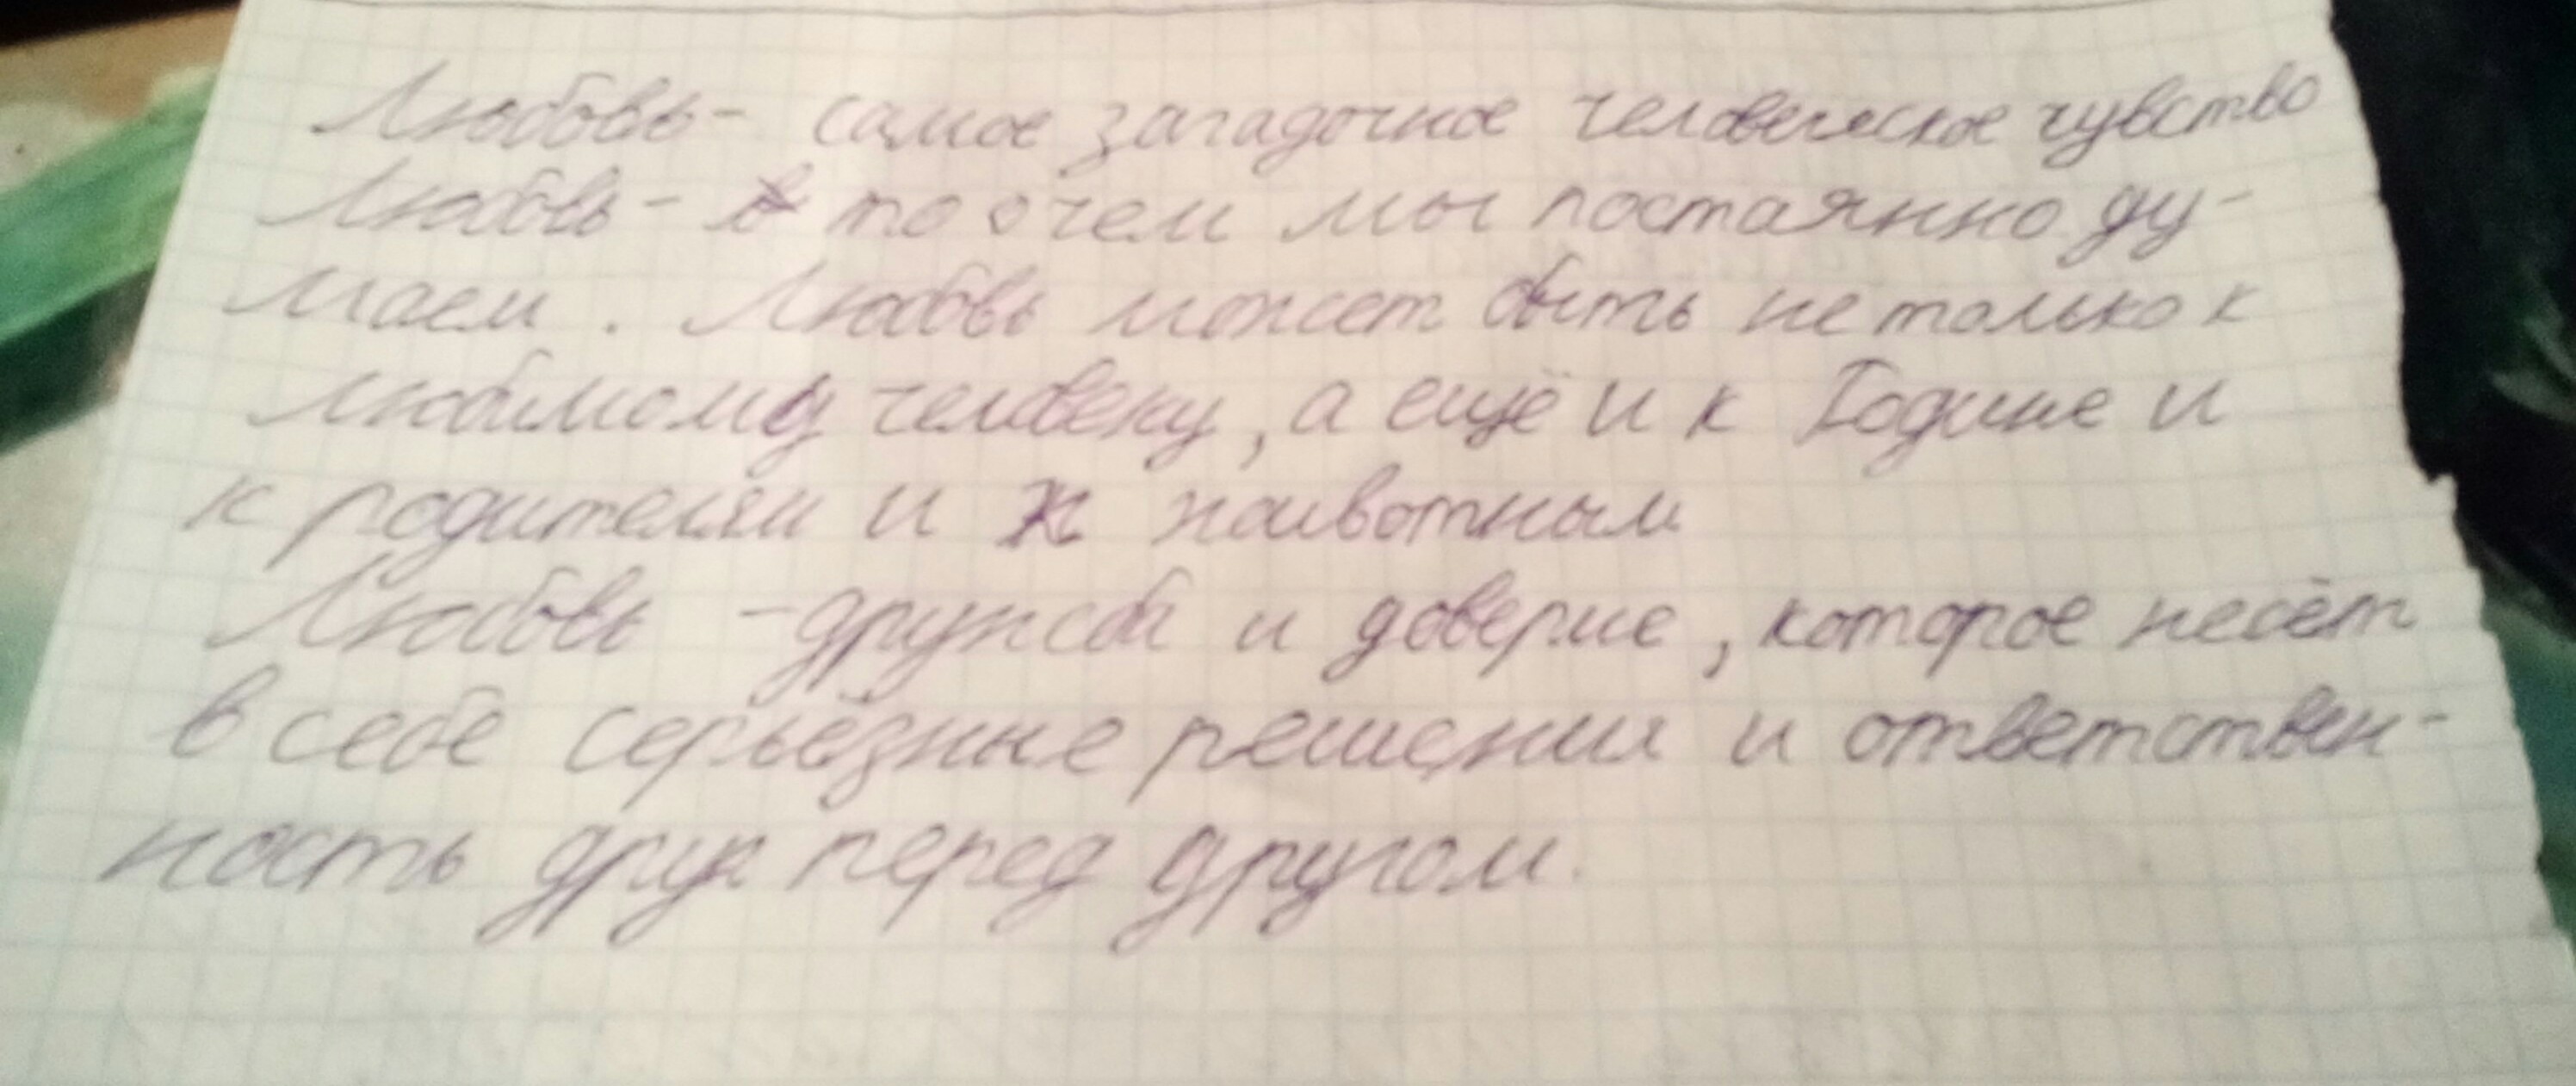 Любовь - самое загадочное человеческое чувство
Любовь - то о чем мы постоянно ду-
маем. Любовь может быть не только к
любимому человеку, а ещё и к Родине и
к родителям и к животным
Любовь - дружба и доверие, которое несёт
в себе серьёзные решения и ответствен-
ность друг перед другом.